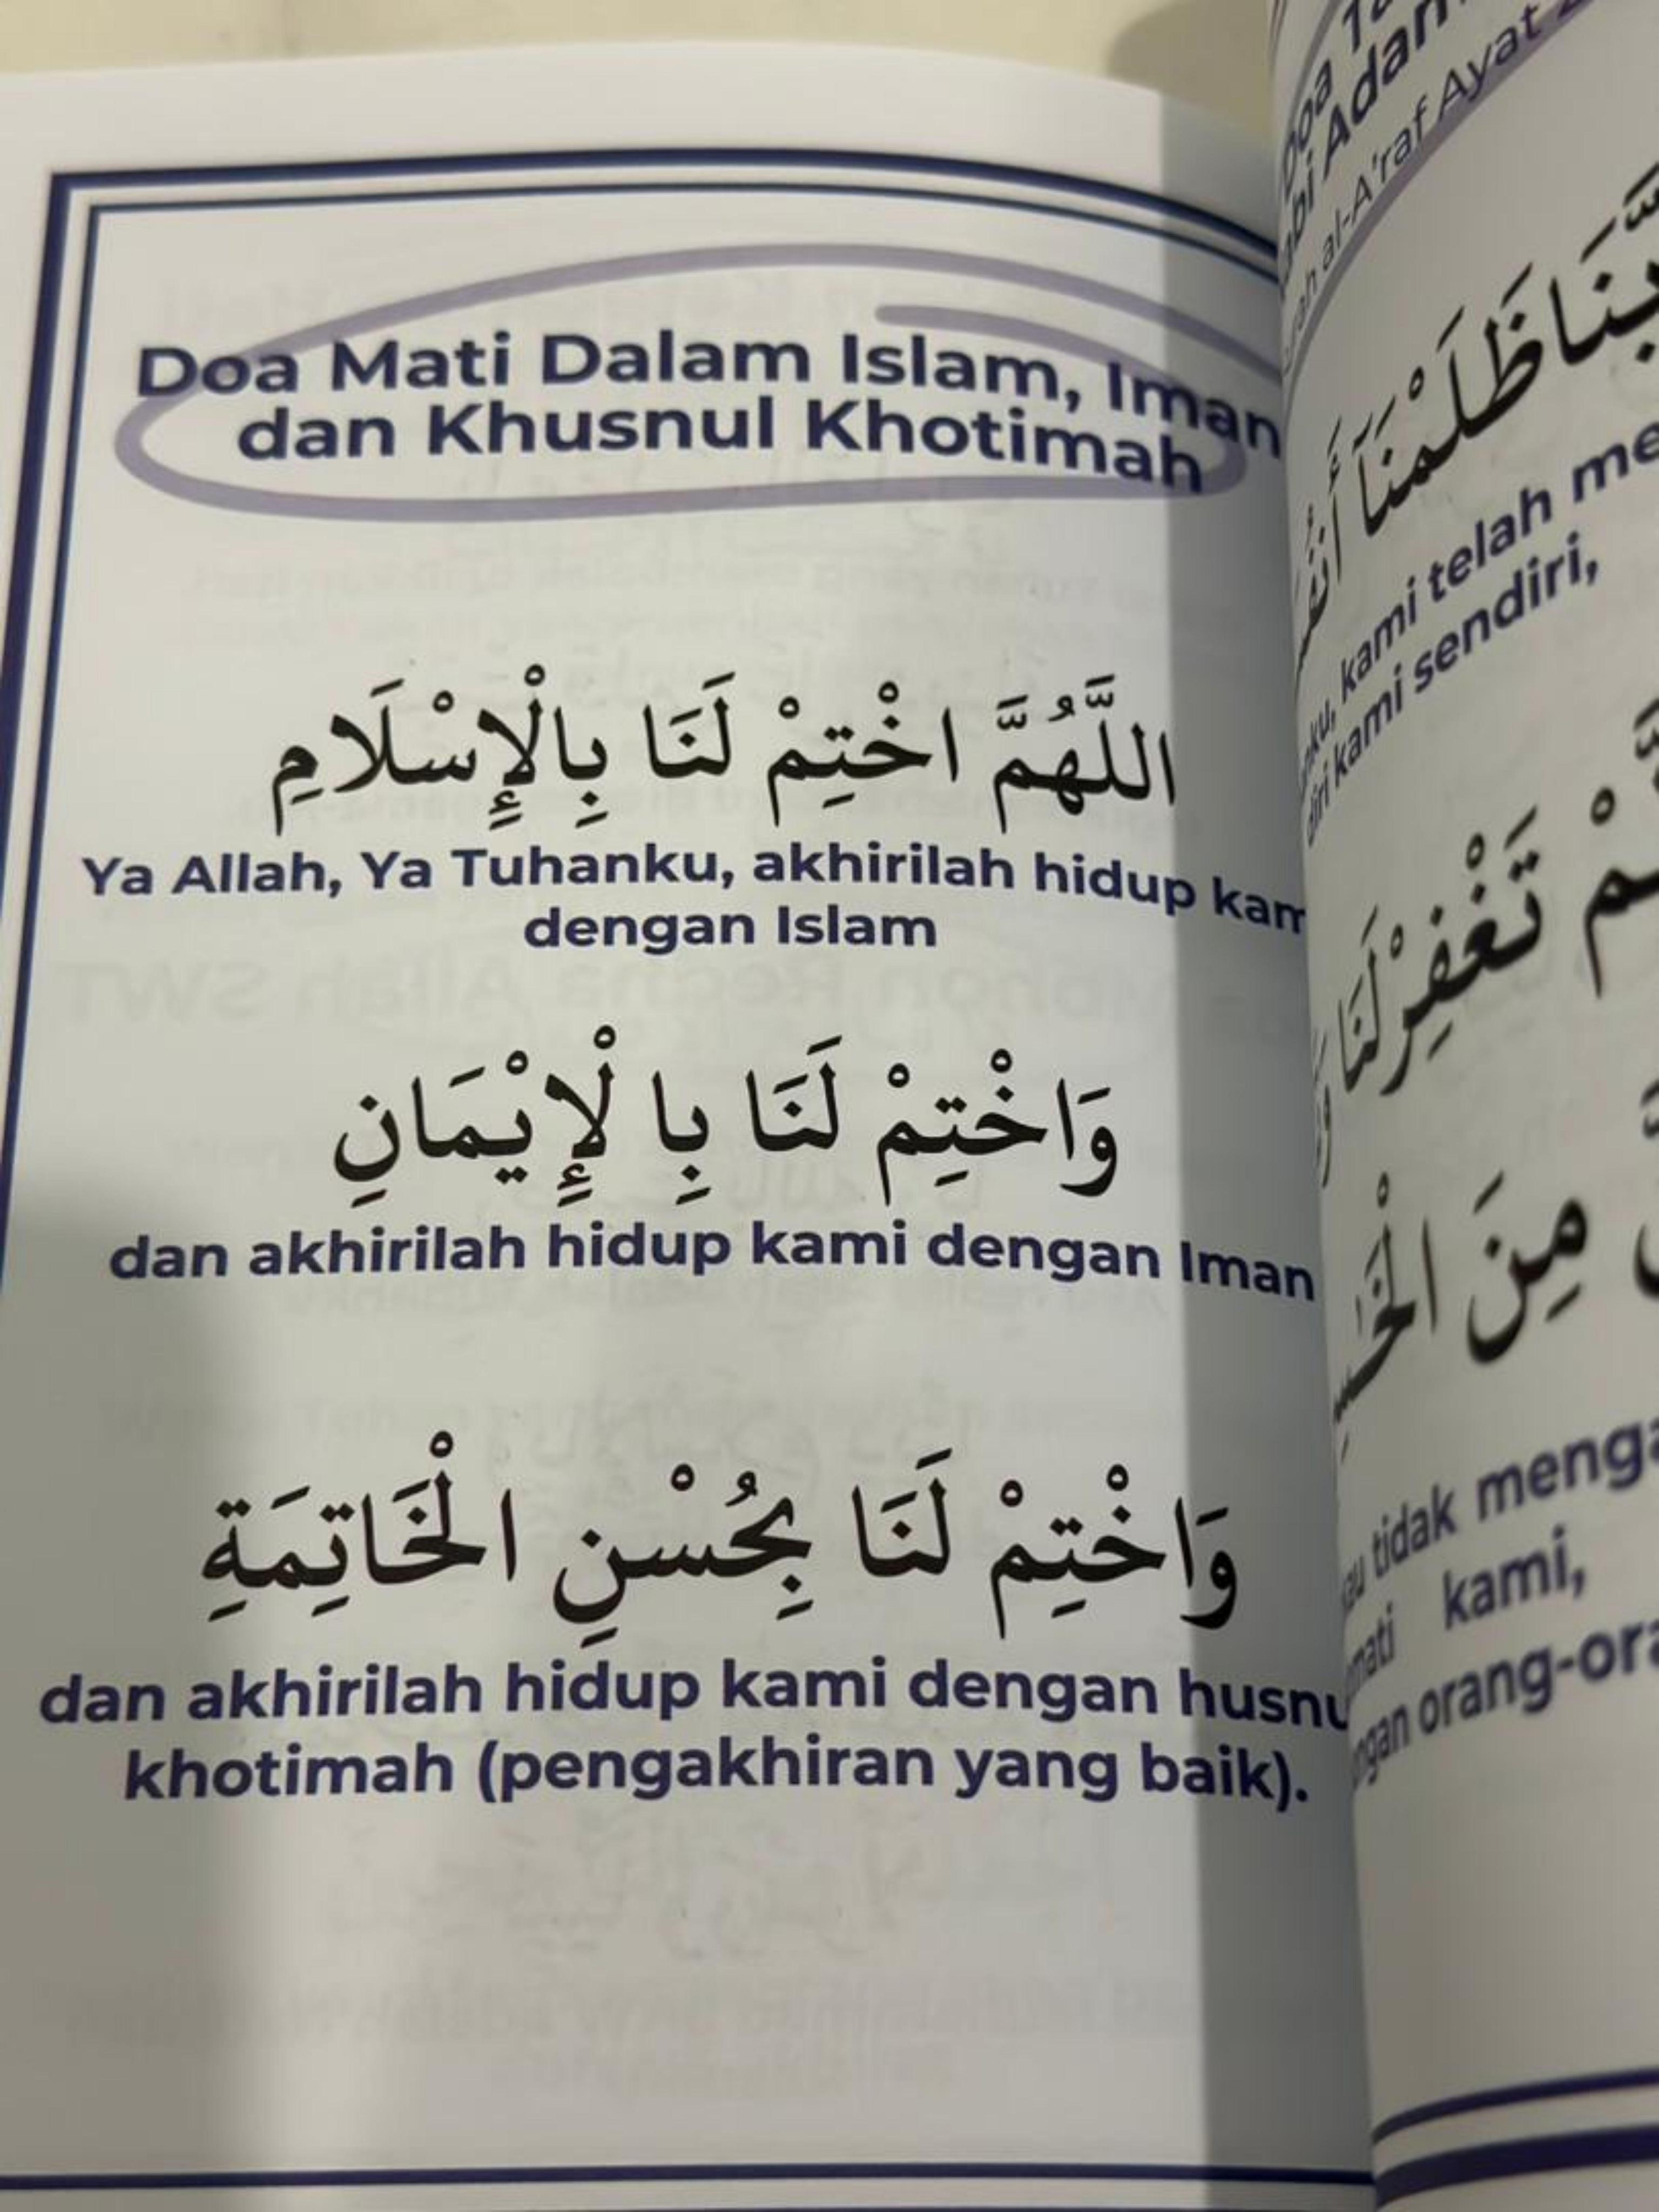 Doa Mati Dalam Islam, Iman
dan Khusnul Khotimah
اللَّهُمَّ اخْتِمْ لَنَا بِالْإِسْلَامِ
Ya Allah, Ya Tuhanku, akhirilah hidup kam
dengan Islam
وَاخْتِمْ لَنَا بِا لْإِيْمَانِ
dan akhirilah hidup kami dengan Iman
وَاخْتِمْ لَنَا بِحُسْنِ الْخَاتِمَةِ
dan akhirilah hidup kami dengan husnu
khotimah (pengakhiran yang baik).
al-A'raf Ayat
ظَلَمْنَآ
kami telah me
diri kami sendiri,
تَغْفِرْلَنَا
مِنَ
tidak menga
kami,
orang-ora